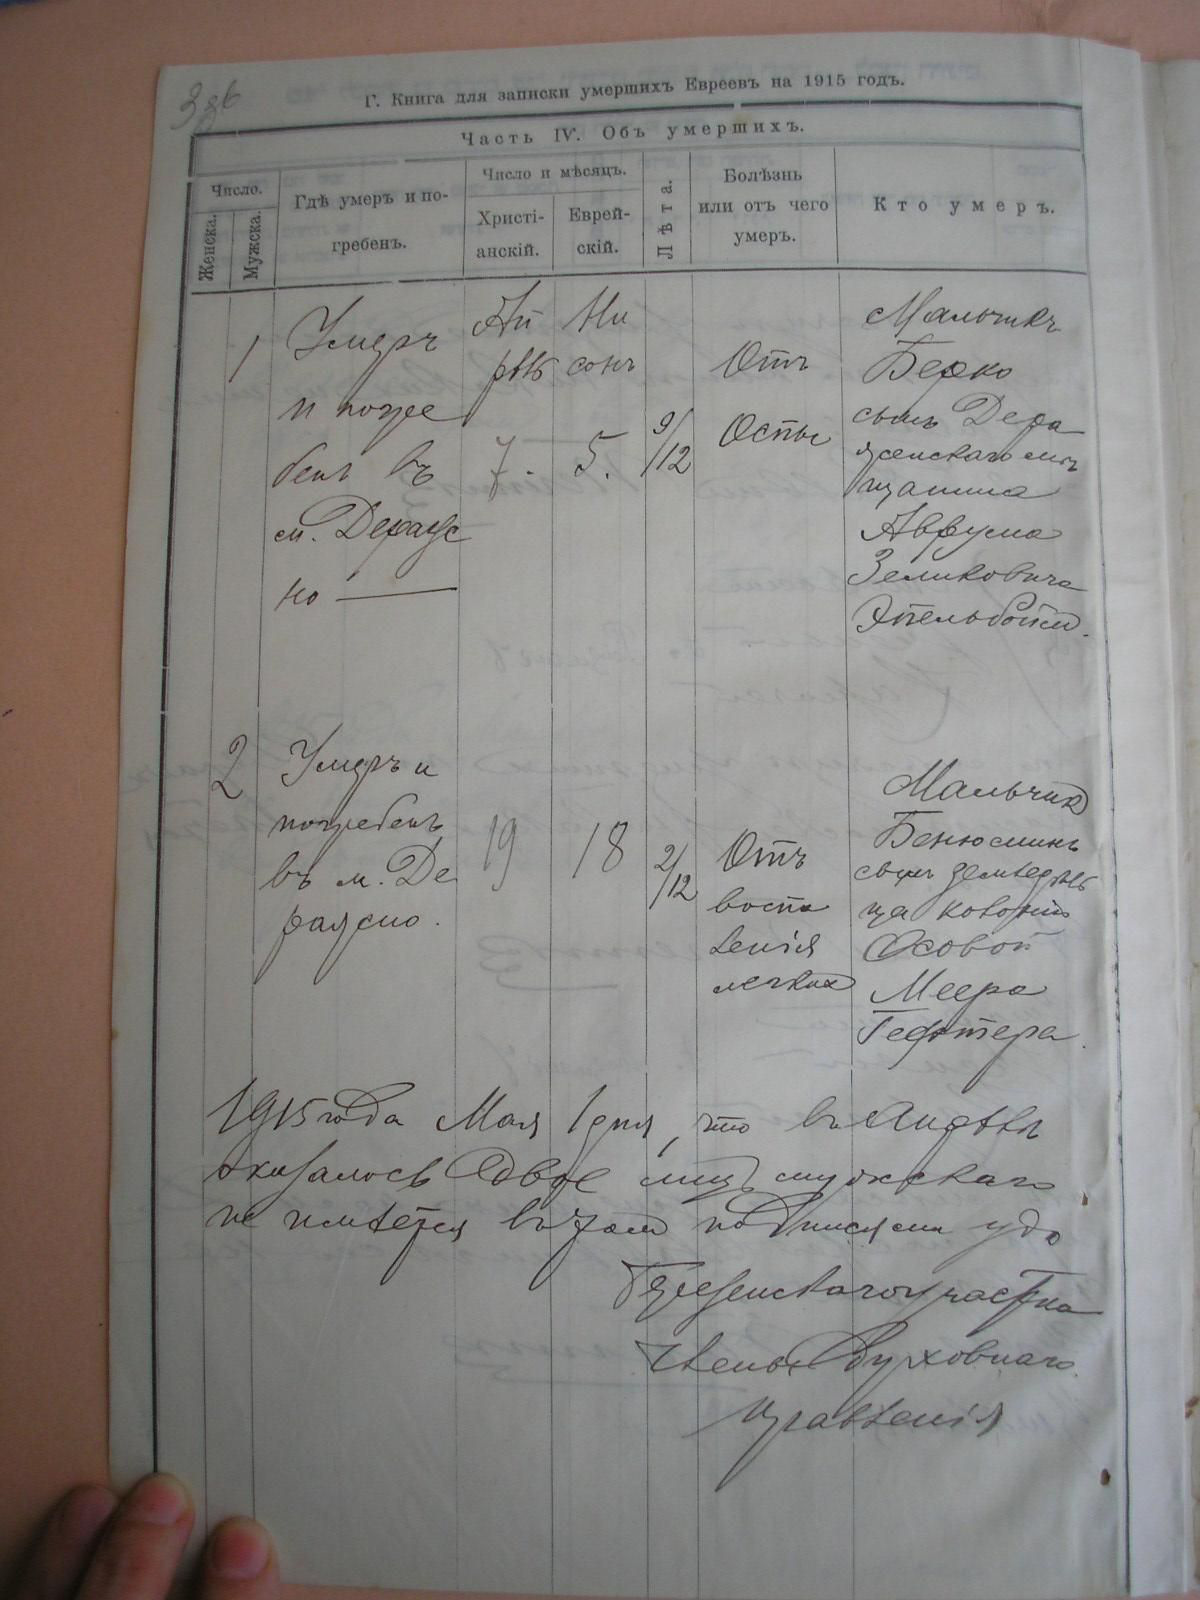 Г. Книга для записки умершихъ Евреевъ на 1915 годъ.
Часть IV. Объ умершихъ.
Число.
Женска.
Мужска.
Гдѣ умеръ и по-
гребенъ.
Число и мѣсяцъ.
Христі-
анскій.
Еврей-
скій.
Лѣта.
Болѣзнь
или отъ чего
умеръ.
Кто умеръ.
1
Умеръ
и погре
бенъ въ
м. Дераж
но
Ап
рѣль
7.
Ни
сонъ
5.
9/12
Отъ
Оспы
Мальчикъ
Берко
сынъ Дера
женскаго мѣ
щанина
Аврума
Зеликовича
Эпельбойм.
2
Умеръ и
погребенъ
въ м. Де
ражно.
19
18
2/12
Отъ
воспа
ленія
легкихъ
Мальчик
Беньюминъ
сынъ земледѣль
ца колоніи
Осовой
Меера
Гефтера.
1915 года Мая 1 дня, что въ Апрѣлѣ
оказалось двое лицъ мужскаго
не имѣется въ томъ подписями удо
участка
Члены Духовнаго
правленія